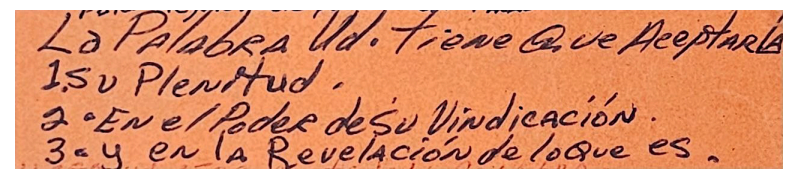 La Palabra Ud. tiene Que Aceptarla
1. Su Plenitud.
2. En el Poder de su Vindicación.
3. y en la Revelación de lo Que es.